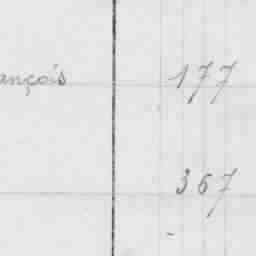 ançois 177
367
-